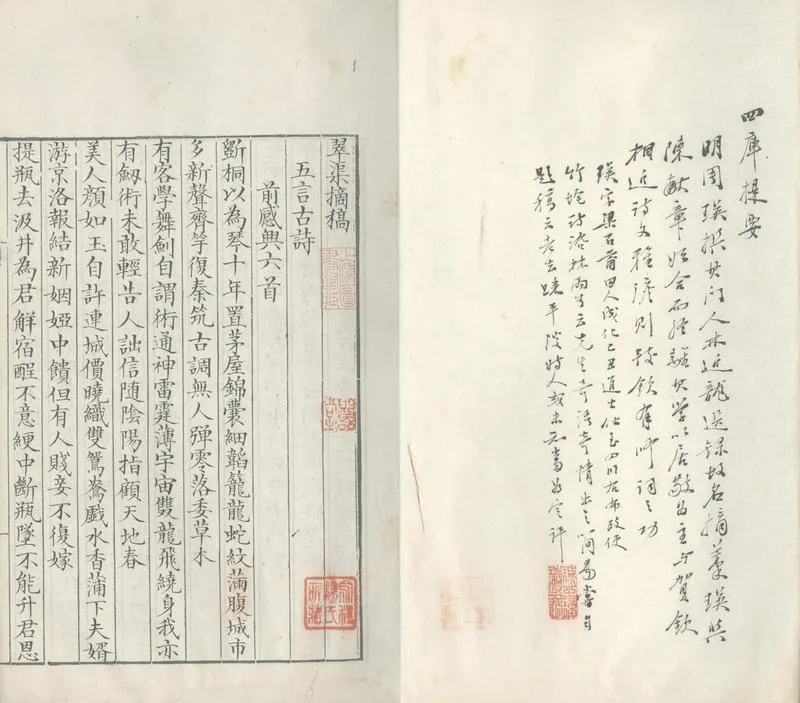 四庫提要
明周瑛撰其门人林近龍選録故名摘藁瑛與
陳献章始合而终其学以居敬为主与賀欽
相近诗文雅澹则较欽有功
瑛字梁石莆田人成化己丑進士仕至四川右布政使
竹垞诗话林雨可云先生奇语奇情出之简易自
题稿云老去疎平淡时人或未知当为定评
翠渠摘稿
五言古詩
前感興六首
斲桐以為琴十年置茅屋錦囊細韜籠龍蛇紋滿腹城市
多新聲齊竽復秦筑古調無人弹零落委草木
有客學舞劍自謂術通神雷霆薄宇宙雙龍飛繞身我亦
有劒術未敢輕告人詘信随陰陽指顧天地春
美人顔如玉自許連城價曉織雙鴛鴦戲水香蒲下夫婿
游京洛報結新姻婭中饋但有人賤妾不復嫁
提瓶去汲井為君解宿酲不意綆中斷瓶墜不能升君恩